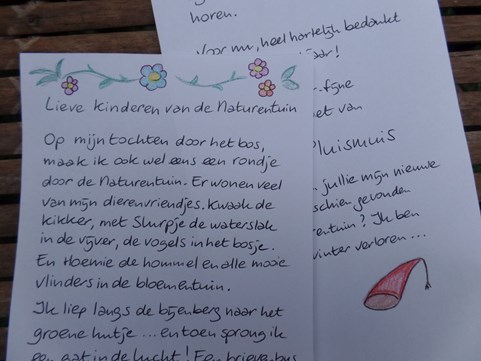 Lieve kinderen van de Naturentuin
Op mijn tochten door het bos,
maak ik ook wel eens een rondje
door de Naturentuin. Er wonen veel
van mijn dierenvriendjes. Kwaak de
kikker, met Slurpje de waterslak
in de vijver, de vogels in het bosje.
En Hoemie de hommel en alle mooie
vlinders in de bloementuin.
Ik liep langs de bijenberg naar het
groene hutje ... en toen sprong ik
een gat in de lucht! Een brievenbus
horen.
Voor nu, heel hartelijk bedankt
fijne
van
Pluismuis
jullie mijn nieuwe
gevonden
? Ik ben
winter verloren ...